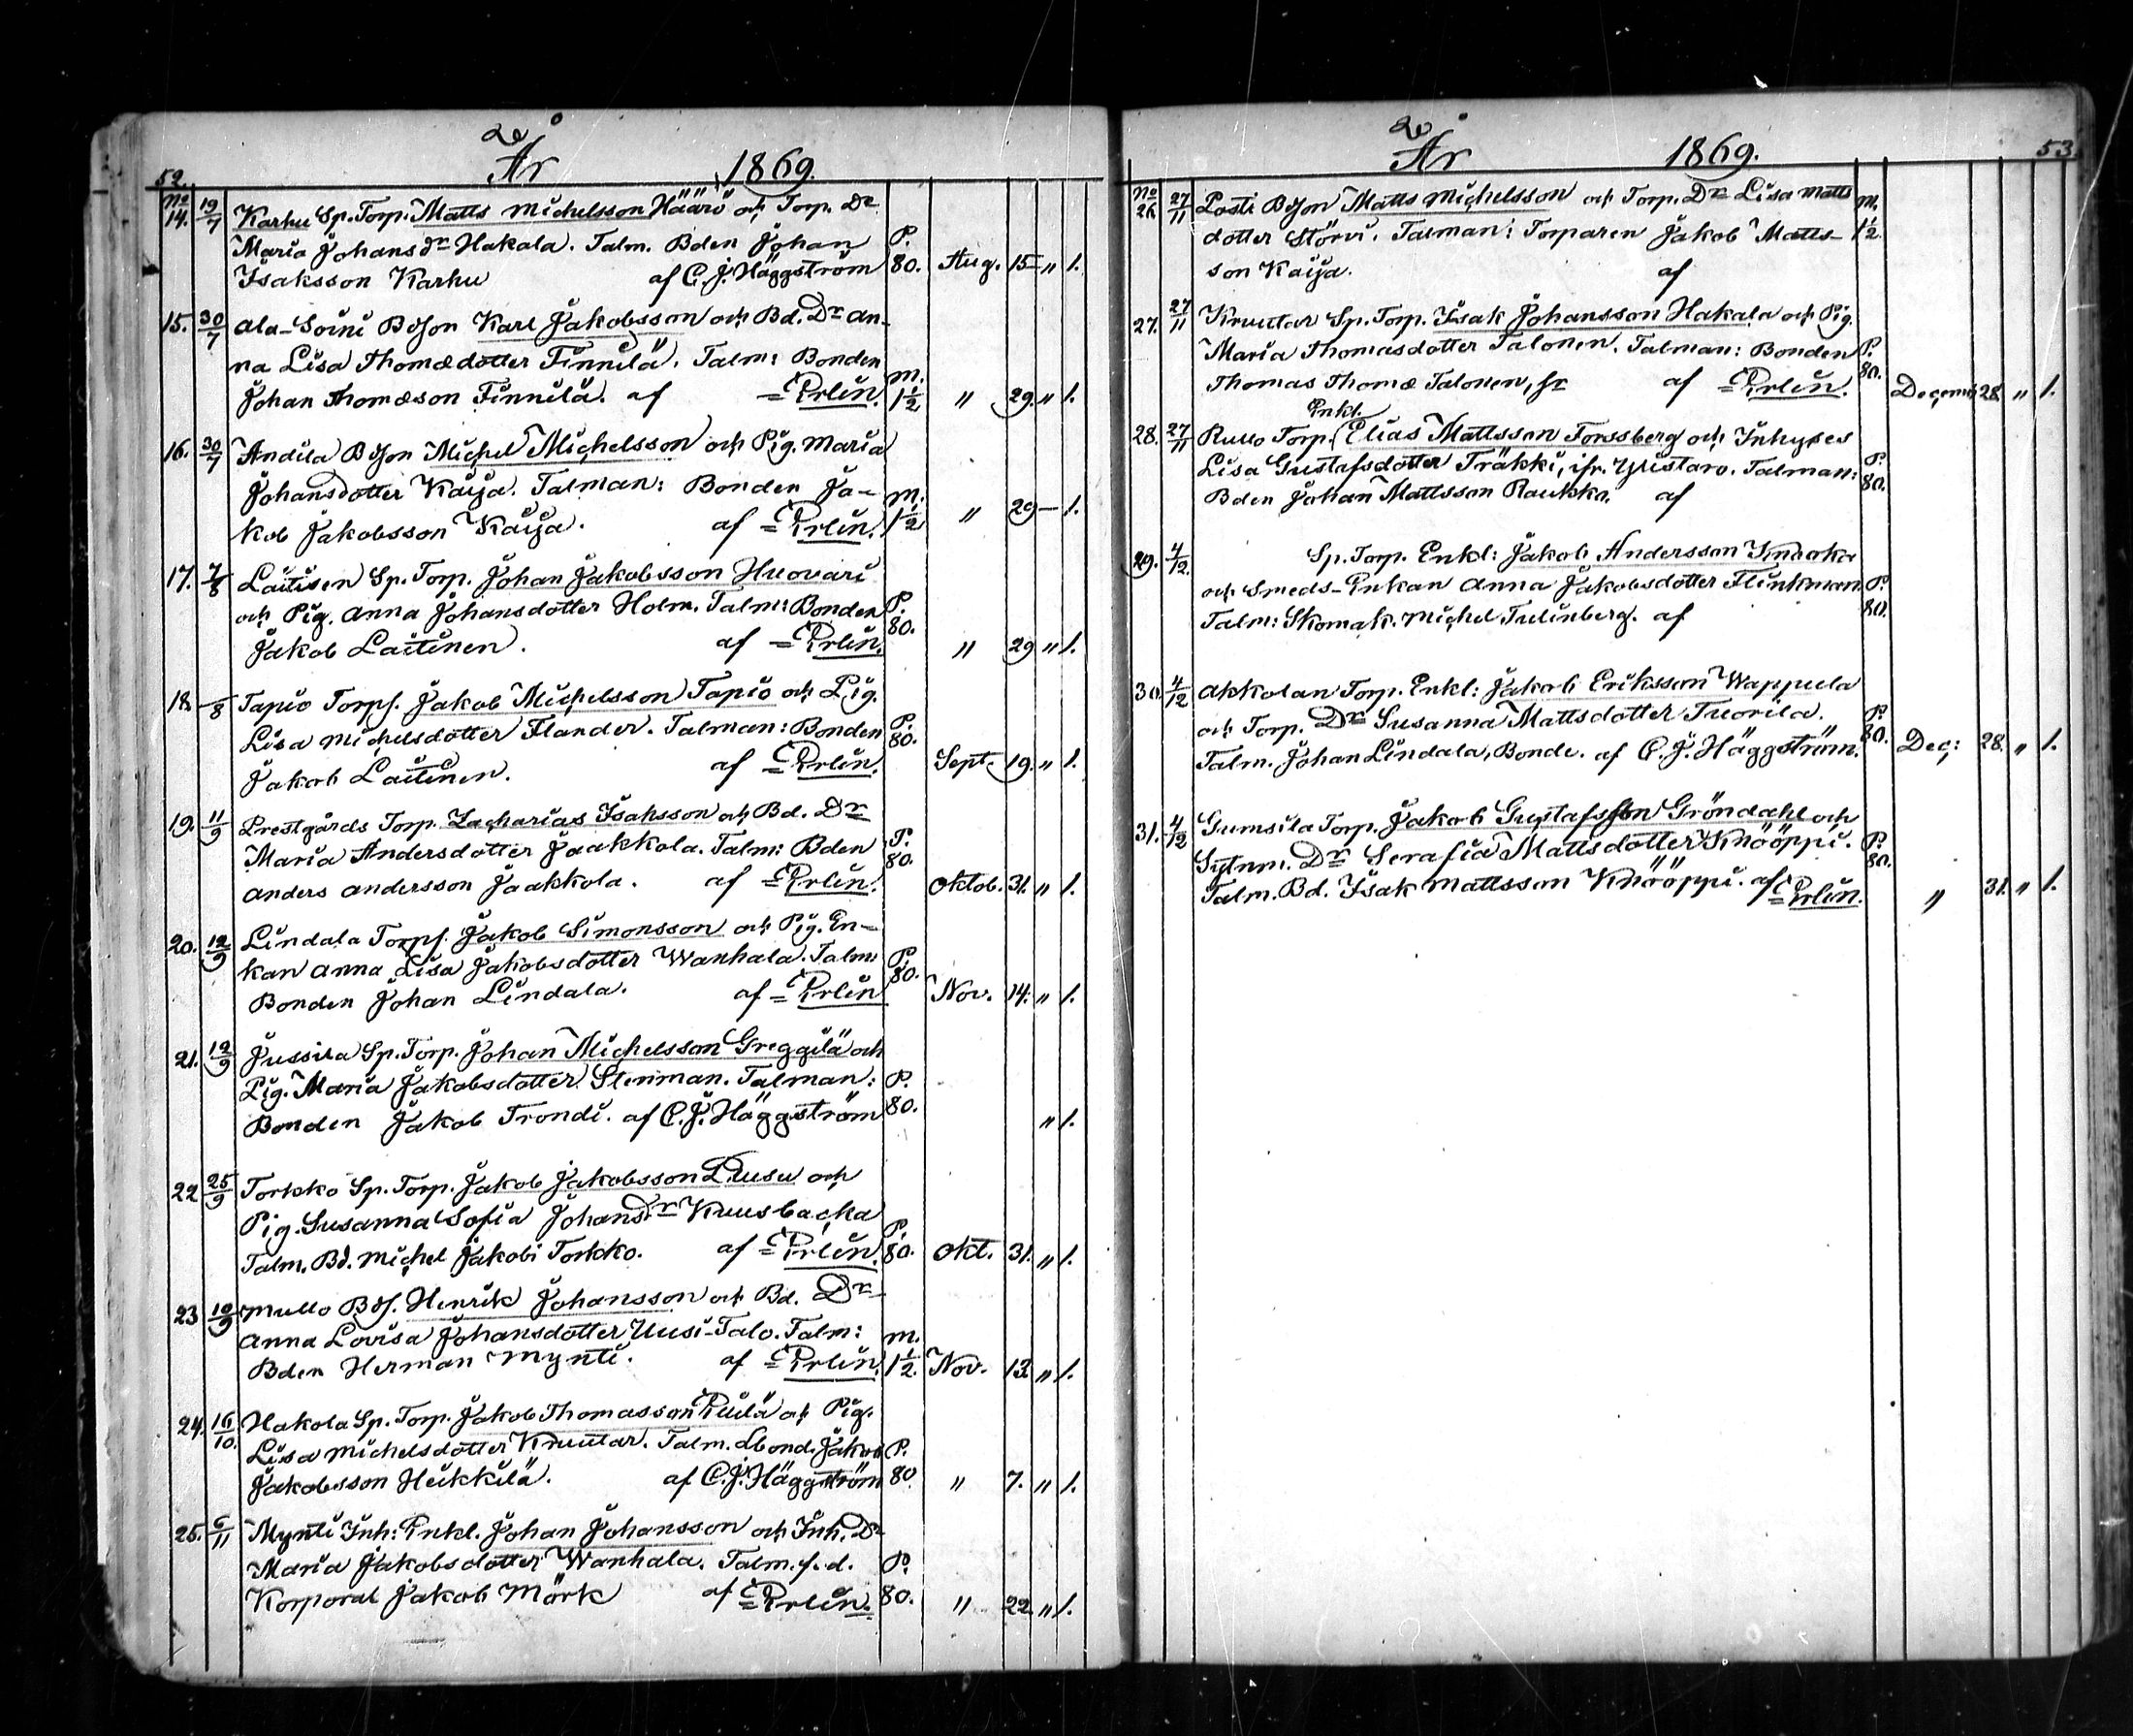 52. År 1869.
No 14. 19/7 Karhu Sp. Torp. Matts Michelsson Hääri och Torp. Dr
Maria Johansdr Hakala. Talm. Bden Johan P.
Isaksson Karhu af C. J. Häggström 80. Aug. 15 " 1.
15. 30/7 Ala-Soini BdSon Karl Jakobsson och Bd. Dr An-
na Lisa Thomædotter Finnilä. Talm: Bonden m.
Johan Thomæson Finnilä. af Erlin. 1½ " 29. " 1.
16. 30/7 Andila BdSon Michel Michelsson och Pig. Maria
Johansdotter Kaija. Talman: Bonden Ja- m.
kob Jakobsson Kaija. af Erlin. 1½ " 29 — 1.
17. 7/8 Laitisen Sp. Torp. Johan Jakobsson Huovari
och Pig. Anna Johansdotter Holm. Talm: Bonden P.
Jakob Laitinen. af Erlin. 80. " 29 " 1.
18. –/8 Tapio Torps. Jakob Michelsson Tapio och Pig.
Lisa Michelsdotter Flander. Talman: Bonden P.
Jakob Laitinen. af Erlin. 80. Sept. 19. " 1.
19. 11/9 Prestgårds Torp. Zacharias Isaksson och Bd. Dr
Maria Andersdotter Jaakkola. Talm: Bden P.
Anders Andersson Jaakkola. af Erlin. 80. Oktob. 31. " 1.
20. 12/9 Lindala Torps. Jakob Simonsson och Pig. En-
kan Anna Lisa Jakobsdotter Wanhala. Talm: P.
Bonden Johan Lindala. af Erlin 80. Nov. 14. " 1.
21. 12/9 Jussila Sp. Torp. Johan Michelsson Greggilä och
Pig. Maria Jakobsdotter Stenman. Talman: P.
Bonden Jakob Trondi. af C. J. Häggström 80. " 1.
22 25/9 Torkko Sp. Torp. Jakob Jakobsson Luusu och
Pig. Susanna Sofia Johansdr Kuusbacka P.
Talm. Bd. Michel Jakobi Torkko. af Erlin. 80. Okt. 31. " 1.
23 19/9 Mullo Bds. Henrik Johansson och Bd. Dr
Anna Lovisa Johansdotter Uusi-Talo. Talm: m.
Bden Herman Mynti. af Erlin. 1½. Nov. 13. " 1.
24. 16/10. Hakola Sp. Torp. Jakob Thomasson Piilä och Pig.
Lisa Michelsdotter Kruutar. Talm. Lbond. Jakob P.
Jakobsson Heikkilä. af C. J. Häggström 80 " 7. " 1.
25. 6/11 Mynti Inh: Enkl. Johan Johansson och Inh. Dr
Maria Jakobsdotter Wanhala. Talm. f. d. P.
Korporal Jakob Mörk af Erlin. 80. " 22. " 1.
År 1869. 53.
No 26 27/11 Posti BdSon Matts Michelsson och Torp. Dr Lisa Matts m.
dotter Störvi. Talman: Torparen Jakob Matts- 1½.
son Kaija. af
27. 27/11 Kruutar Sp. Torp. Isak Johansson Hakala och Pig.
Maria Thomasdotter Talonen. Talman: Bonden P.
Thomas Thomæ Talonen, sr af Erlin. 80. Decemb 28. " 1.
Enkl.
28. 27/11 Rullo Torp. Elias Mattsson Forssberg och Inhyses
Lisa Gustafsdotter Träkki, ifr. Ylistaro. Talman: P.
Bden Johan Mattsson Raukko. af 80.
29. 4/12. Sp. Torp. Enkl: Jakob Andersson
och Smeds-Enkan Anna Jakobsdotter Flinkman. P.
Talm: Skomak. Michel Tulinberg. af 80.
30. 4/12 Akkolan Torp. Enkl: Jakob Eriksson Wappula
och Torp. Dr Susanna Mattsdotter Tuorila. P.
Talm. Johan Lindala, Bonde. af C. J. Häggström. 80. Dec: 28. " 1.
31. 4/12 Gumsila Torp. Jakob Gustafsson Gröndahl och
Sytnm. Dr Serafia Mattsdotter Knööppi. P.
Talm. Bd. Isak Mattsson Knööppi. af Erlin. 80. " 31. " 1.